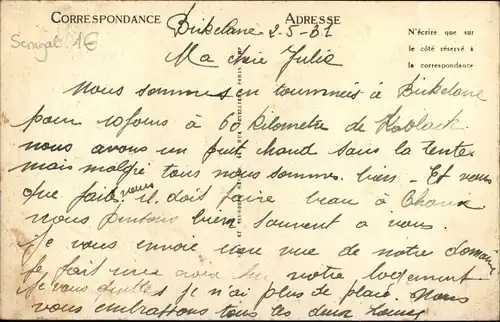 CORRESPONDANCE
ADRESSE
Senegal 1€
N'écrire que sur
le côté réservé à
la correspondance
Birkelane 2-5-31
Ma chère Julia
Nous sommes en tournées à Birkelane
pour 10 jours à 60 kilometre de Koblack
nous avons un peut chaud sous la tente
mais malgré tous nous sommes bien - Et vous
que faite vous il doit faire beau à
nous pensons bien souvent a vous.
Je vous envoie une vue de notre
Je fait une croix sur notre logement
Je vous quittes je n'ai plus de place. Nous
vous embrassons tous les deux